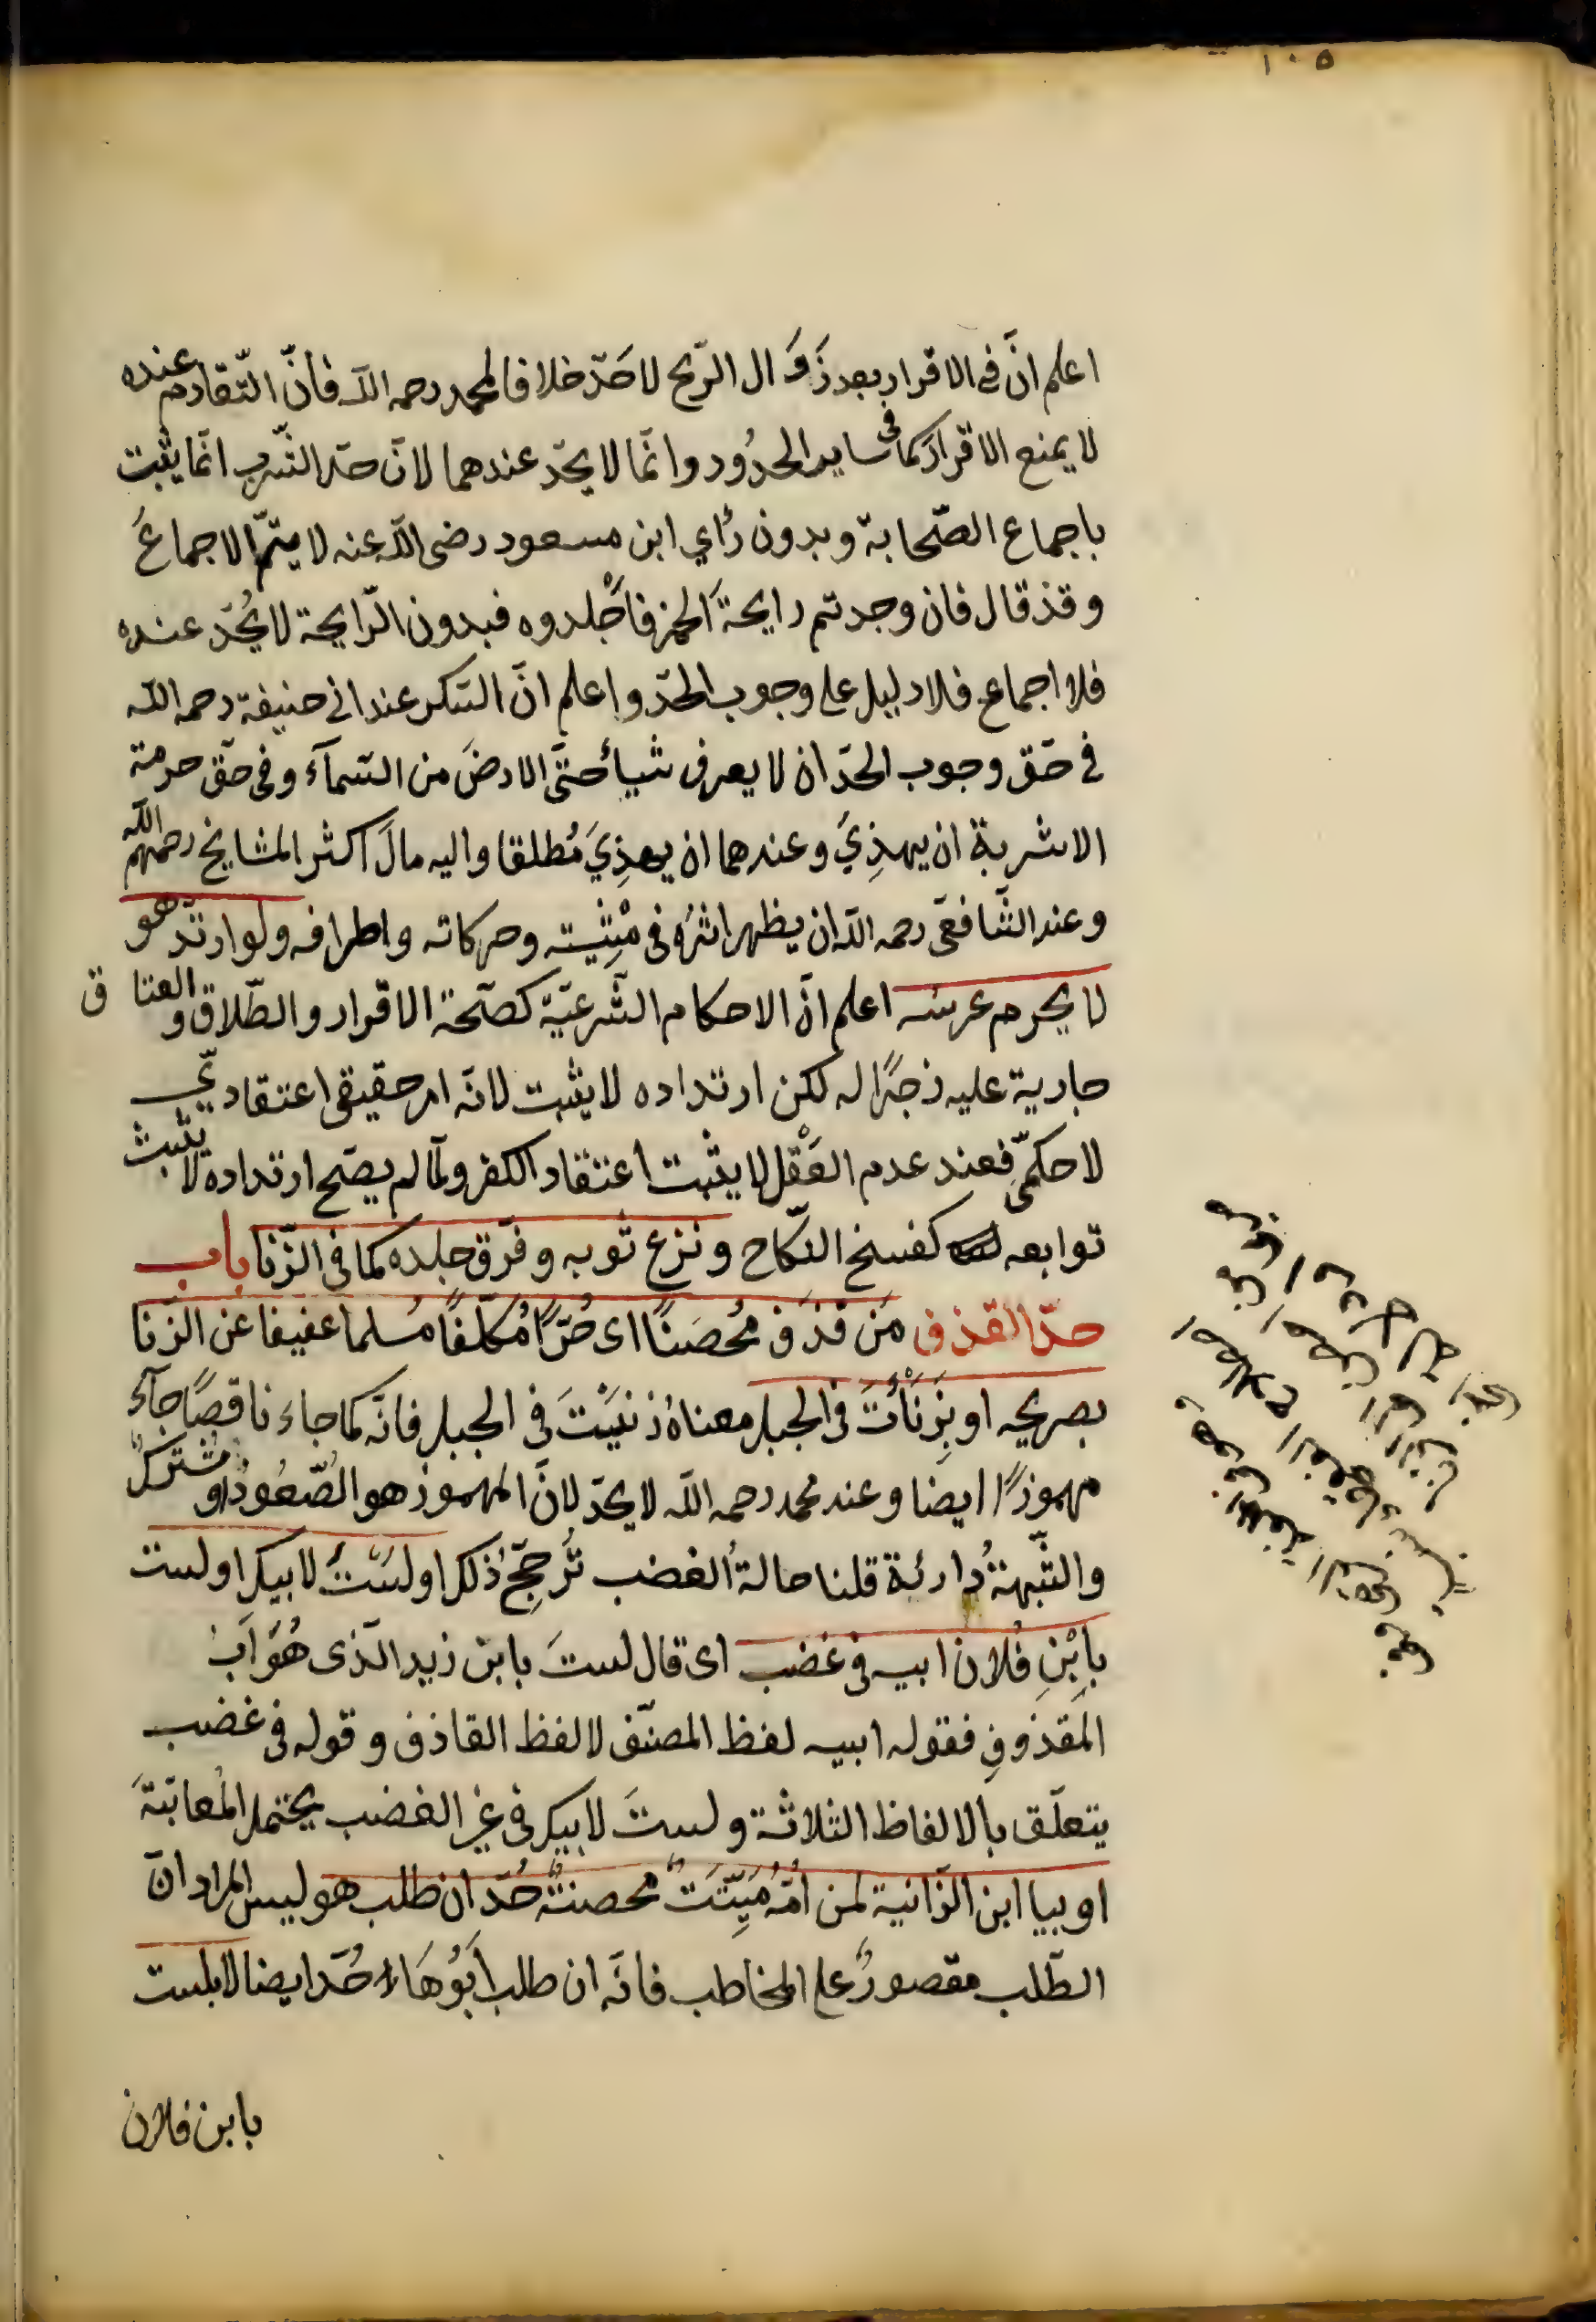 ١٠٥
اعلم انَّ فى الاقرار بعد زَوَال الرّيح لا حَدّ خلافا لمحمد رحمه اللّه فانّ التّقادم عنده
لا يمنع الاقرارَ كما فى ساير الحدُود وانّما لا يحدّ عندهما لانّ حدّ الشّرب انّما يثبت
باجماع الصّحابة وبدون رأي ابن مسعود رضى اللّه عنه لا يتمّ الاجماعَ
وقد قال فان وجدتم رايحةَ الخمر فاجْلدوه فبدون الرّايحة لا يُحدّ عنده
فلا اجماع فلا دليل على وجوب الحدّ واعلم انّ السّكر عند ابى حنيفة رحمه اللّه
فى حَقّ وجوب الحدّ ان لا يعرف شيأ حتّى الارضَ من السّمآء وفى حقّ حرمة
الاشربة ان يهذِيَ وعندهما ان يهذِيَ مُطلقا واليه مالَ اكثر المشايخ رحمهم اللّه
وعند الشّافعى رحمه اللّه ان يظهر اثرُه فى مِشْيته وحركاته واطرافه ولو ارتدّ هو
لا يحرم عرسه اعلم انّ الاحكام الشّرعيّة كصحّة الاقرار والطّلاق والعتاق
جارية عليه زجرًا له لكن ارتداده لا يثبت لانّه امر حقيقى اعتقاديّ
لا حكمّى فعند عدم العَقْل لا يثبت اعتقاد الكفر ولمّا لم يصحّ ارتداده لا يثبت
توابعه كفسخ النّكاح ونزع ثوبه وفرّق جلده كما فى الزّنا باب
حدّ القذف مَن قذَف مُحصَنًا اى حُرًّا مُكلّفًا مُسلما عفيفا عن الزّنا
بصريحه او بِزَنَأْتَ فى الجبل معناه زنيَتَ فى الجبل فانّه كما جاء ناقصًا جآء
مهموزًا ايضا وعند محمد رحمه اللّه لا يحدّ لانّ المهموز هو الصّعُودُ او مشتركٌ
والشّبهةُ دارئة قلنا حالةُ الغضب تُرجّحُ ذلك او لسْتَ لابيك او لست
بابْنِ فُلان ابيه فى غضب اى قال لستَ بابن زيد الّذى هُوَ اَبُ
المقذوفِ فقوله ابيه لفظ المصنّف لا لفظ القاذف وقوله فى غضب
يتعلّق بالالفاظ الثلاثة ولستَ لابيك فى غير الغضب يحتمل المُعاتبَةَ
او بيا ابن الزّانية لمن اُمّهُ مَيِّتَتٌ محصنتٌ حُدّ ان طلب هو ليس المراد انّ
الطّلب مقصورٌ على المخاطب فانّه ان طلب اَبُوهَا حُدّ ايضا لا بلست
بابن فلان